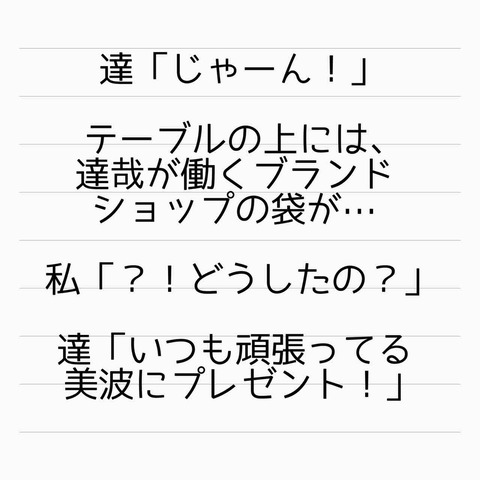 達「じゃーん！」
テーブルの上には、
達哉が働くブランド
ショップの袋が…
私「？！どうしたの？」
達「いつも頑張ってる
美波にプレゼント！」